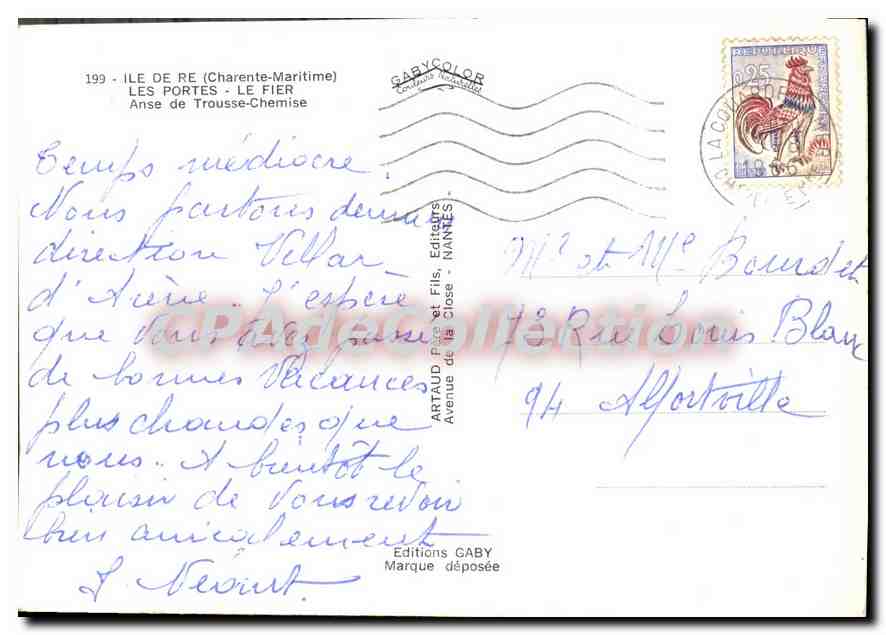 199 - ILE DE RE (Charente-Maritime)
LES PORTES - LE FIER
Anse de Trousse-Chemise
GABYCOLOR
Couleurs Naturelles
REPUBLIQUE FRANCAISE
0,25
LA COUARDE
Temps médiocre.
Nous partons demain
direction Villar
d'Arène. J'espère
que vous avez passé
de bonnes vacances
plus chaudes que
nous. A bientôt le
plaisir de vous revoir
bien amicalement
ARTAUD Père et Fils, Editeurs
Avenue de la Close - NANTES
CPAdeCollection
Mr et Me Bourdet
73 Rue Louis Blanc
94 Alfortville
Editions GABY
Marque déposée